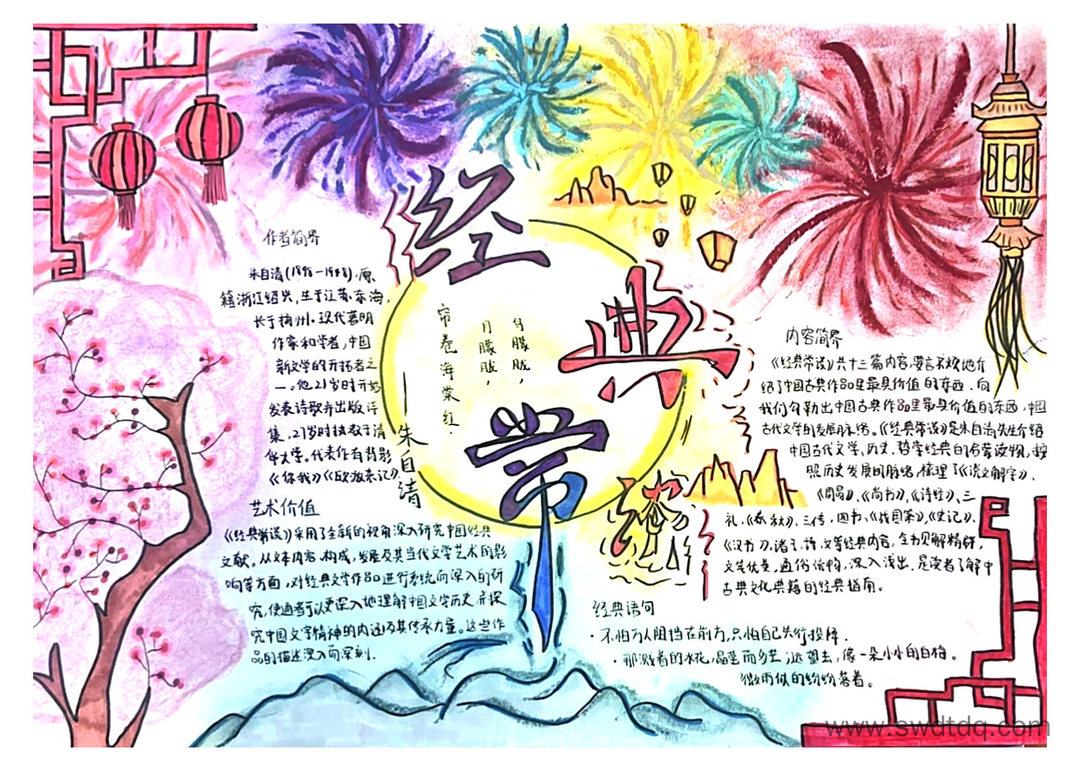 经典常谈
作者简介
朱自清(1898-1948),原
籍浙江绍兴,生于江苏东海,
长于扬州。现代著明
作家和学者,中国
新文学的开拓者之
一。他21岁时开始
发表诗歌并出版诗
集,27岁时执教于清
华大学。代表作有《背影》
《你我》《欧游来记》
艺术价值
《经典常谈》采用了全新的视角深入研究中国经典
文献,从文本内容,构成,发展及其当代文学艺术的影
响等方面,对经典文学作品进行系统而深入的研
究,使读者可以更深入地理解中国文学历史,并探
究中国文学精神的内涵及其传承力量。这些作
品的描述深入而深刻.
月朦胧,
鸟朦胧,
帘卷海棠红.
——朱自清
内容简介
《经典常谈》共十三篇内容,要言不烦地介
绍了中国古典作品里最具价值的东西.向
我们勾勒出中国古典作品里最具价值的东西,中国
古代文学的发展脉络。《经典常谈》是朱自清先生介绍
中国古代文学、历史、哲学经典的启蒙读物,按
照历史发展的脉络,梳理了《说文解字》、
《周易》、《尚书》、《诗经》、三
礼、《春秋》、三传、四书、《战国策》、《史记》、
《汉书》、诸子、诗、文等经典内容,全书见解精辟,
文笔优美,通俗流畅,深入浅出,是读者了解中
古典文化典籍的经典指南。
经典语句
·不怕万人阻挡在前方,只怕自己先行投降.
·那溅着的水花,晶莹而多芒;远望去,像一朵小小的白梅。
微雨似的纷纷落着。
www.swdtdq.com